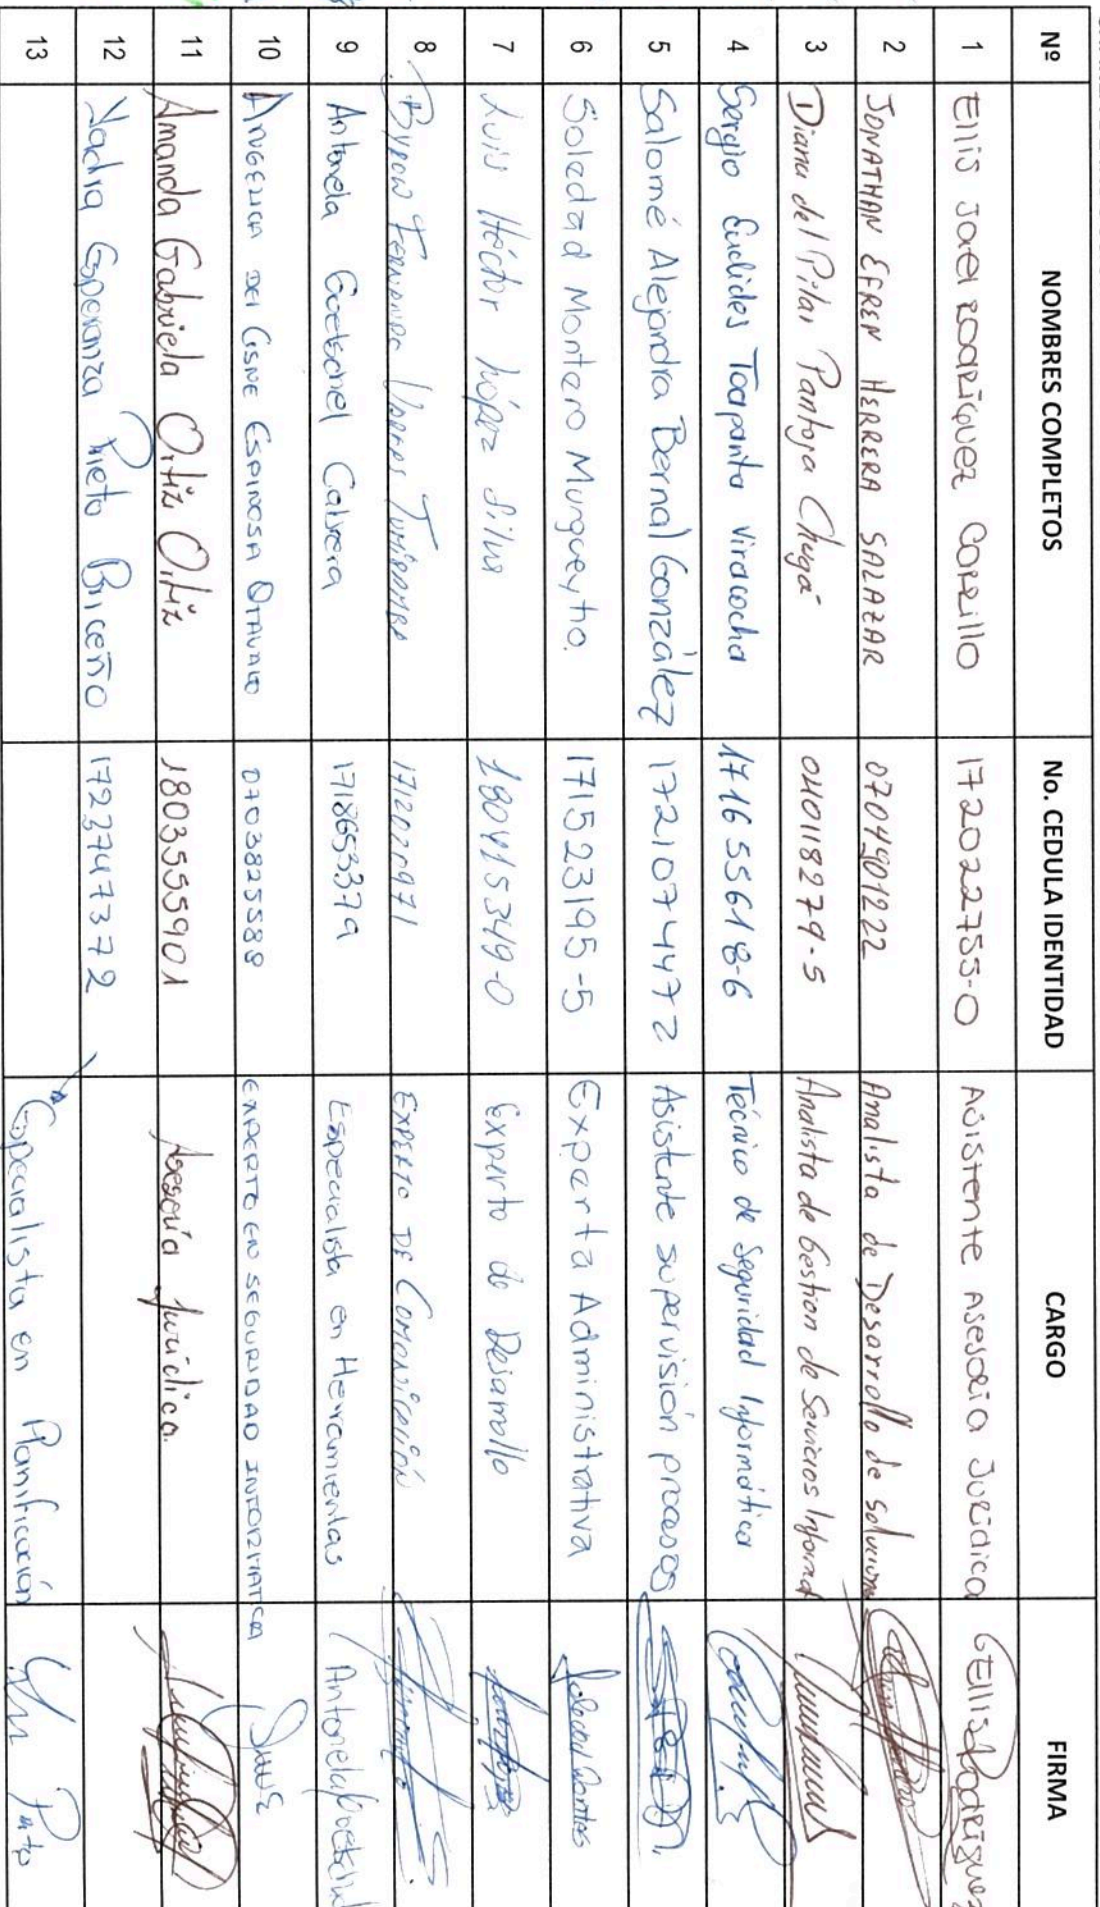 Nº NOMBRES COMPLETOS No. CEDULA IDENTIDAD CARGO FIRMA
1 Ellis Jael Rodriguez Carrillo 172022755-0 Asistente Asesoria Juridica Ellis Rodriguez
2 JONATHAN EFREN HERRERA SALAZAR 0704901222 Analista de Desarrollo de soluciones
3 Diana del Pilar Pantoja Chugá 040118279-5 Analista de Gestion de Servicios Informat
4 Sergio Euclides Toapanta Viracocha 171655618-6 Técnico de Seguridad Informática
5 Salomé Alejandra Bernal González 1721074472 Asistente supervisión procesos
6 Soledad Montero Murgueytio. 171523195-5 Experta Administrativa
7 Luis Héctor López Silva 180415349-0 Experto de Desarrollo
8 Byron Fernando Vargas 1712020971 EXPERTO DE COMUNICACIÓN
9 Antonela Goetschel Cabrera 1718653379 Especialista en Herramientas Antonela Goetschel
10 ANGELICA DEL CISNE ESPINOSA OTAVALO 0703825588 EXPERTO EN SEGURIDAD INFORMATICA
11 Amanda Gabriela Ortiz Ortiz 1803555901 Asesoría Jurídica.
12 Nadia Esperanza Prieto Briceño 1723747372
13 Especialista en Planificación